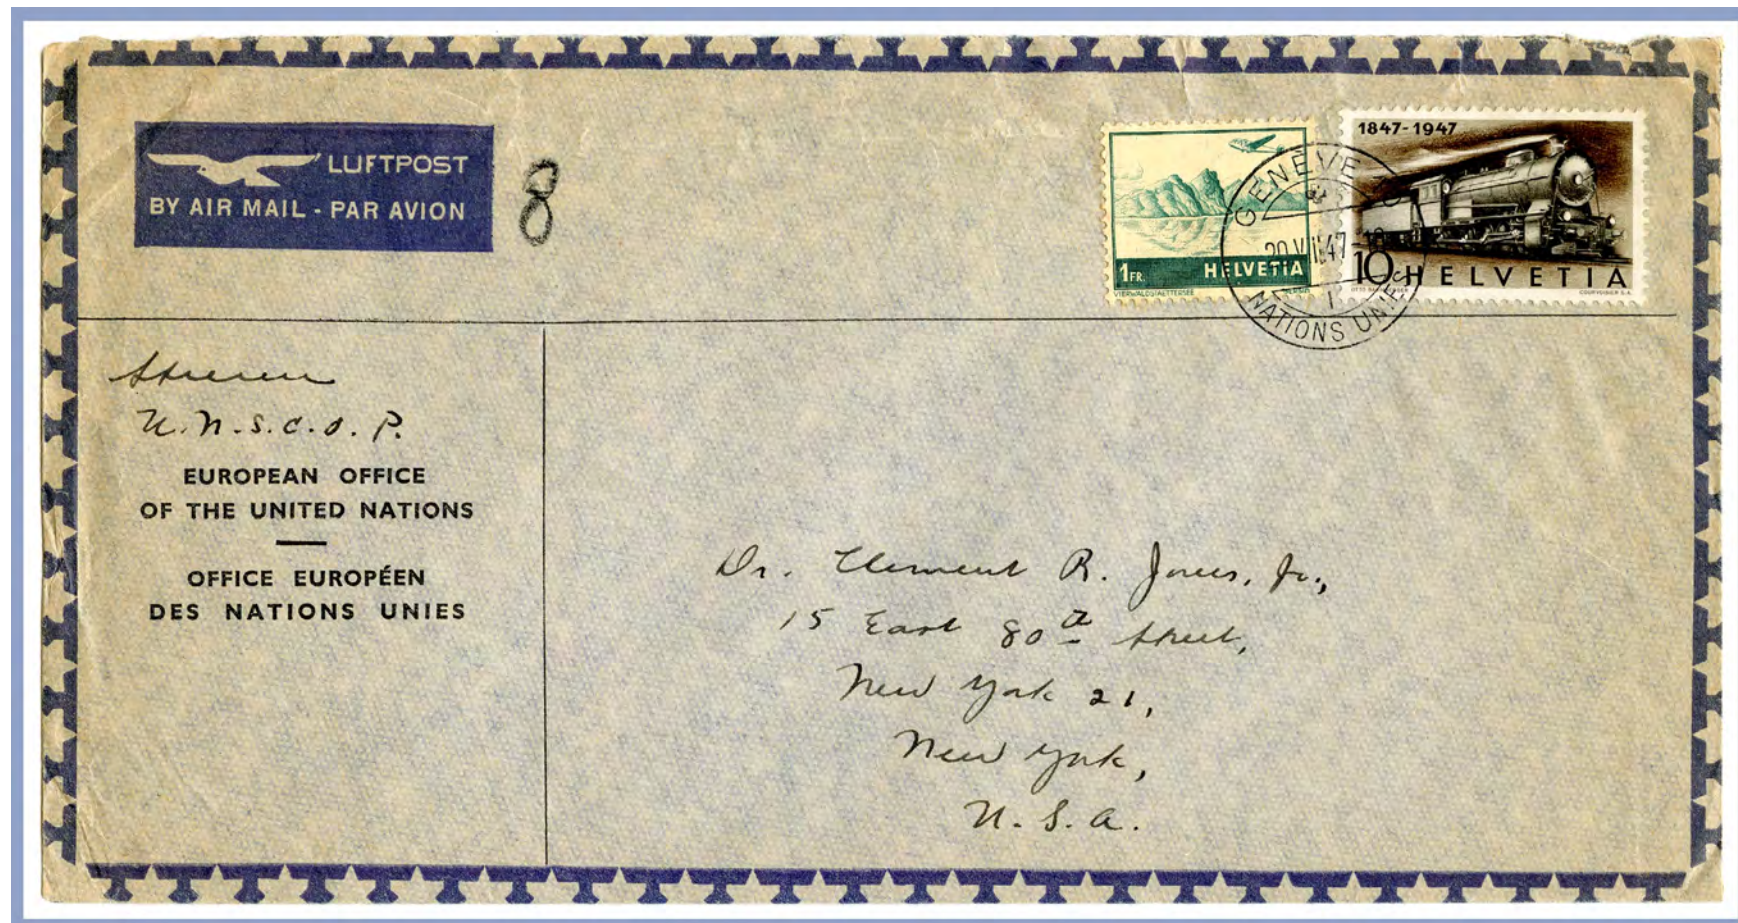 LUFTPOST
BY AIR MAIL - PAR AVION
8
1847-1947
1FR. HELVETIA
VIERWALDSTAETTERSEE
10c HELVETIA
COURVOISIER S.A.
GENÈVE
20.VIII47
NATIONS UNIES
U.N.S.C.O.P.
EUROPEAN OFFICE
OF THE UNITED NATIONS
OFFICE EUROPÉEN
DES NATIONS UNIES
Dr. Clement R. Jones, Jr.,
15 East 80th Street,
New York 21,
New York,
U.S.A.